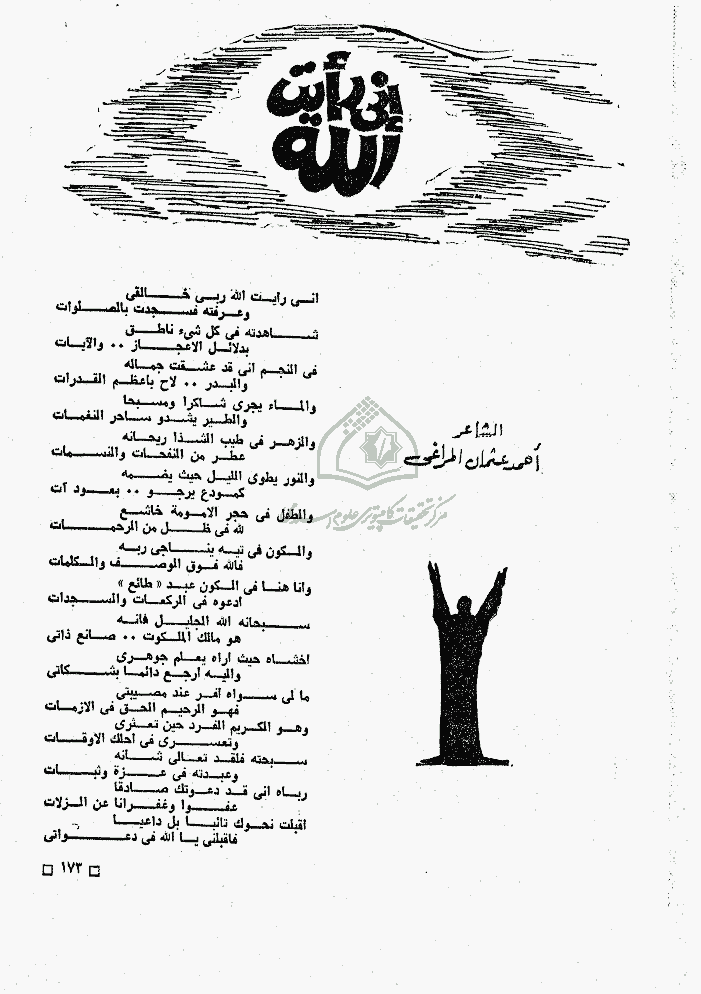 إنى رأيت
الله
الشاعر
أحمد عثمان المراغى
انى رايت الله ربى خالقى
وعرفته فسجدت بالصلوات
شاهدته فى كل شىء ناطق
بدلائل الاعجاز .. والآيات
فى النجم انى قد عشقت جماله
والبدر .. لاح باعظم القدرات
والماء يجرى شاكرا ومسبحا
والطير يشدو ساحر النغمات
والزهر فى طيب الشذا ريحانه
عطر من النفحات والنسمات
والنور يطوى الليل حيث يضمه
كمودع يرجو .. بعود آت
والطفل فى حجر الامومة خاشع
لله فى ظل من الرحمات
والكون فى تيه يناجى ربه
فالله فوق الوصف والكلمات
وانا هنا فى الكون عبد « طائع »
ادعوه فى الركعات والسجدات
سبحانه الله الجليل فانه
هو مالك الملكوت .. صانع ذاتى
اخشاه حيث اراه يعلم جوهرى
واليه ارجع دائما بشكاتى
ما لى سواه أفر عند مصيبتى
فهو الرحيم الحق فى الازمات
وهو الكريم الفرد حين تعثرى
وتعسرى فى احلك الاوقات
سبحته فلقد تعالى شانه
وعبدته فى عزة وثبات
رباه انى قد دعوتك صادقا
عفوا وغفرانا عن الزلات
اقبلت نحوك تائبا بل داعيا
فاقبلنى يا الله فى دعواتى
١٧٣
مركز تحقيقات كامپيوترى علوم اسلامى